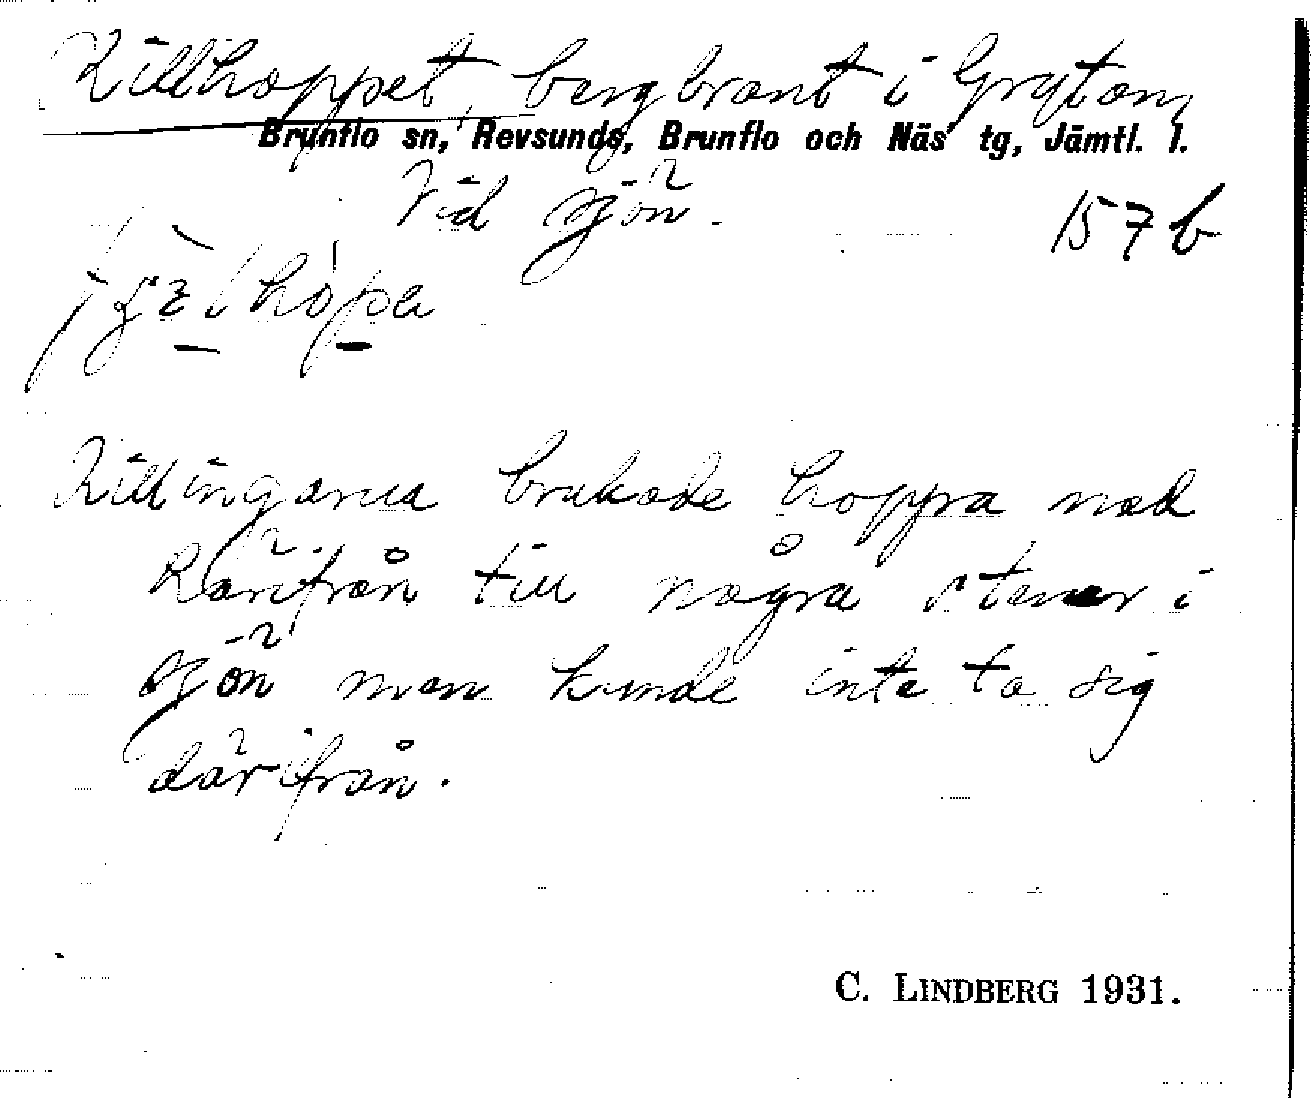 Killhoppet, bergbrant i Grytan,
Brunflo sn, Revsunds, Brunflo och Näs tg, Jämtl. l.
Vid sjön.
157 b
Killingarna brukade hoppa ned
härifrån till några stenar i
sjön men kunde inte ta sig
därifrån.
C. LINDBERG 1931.